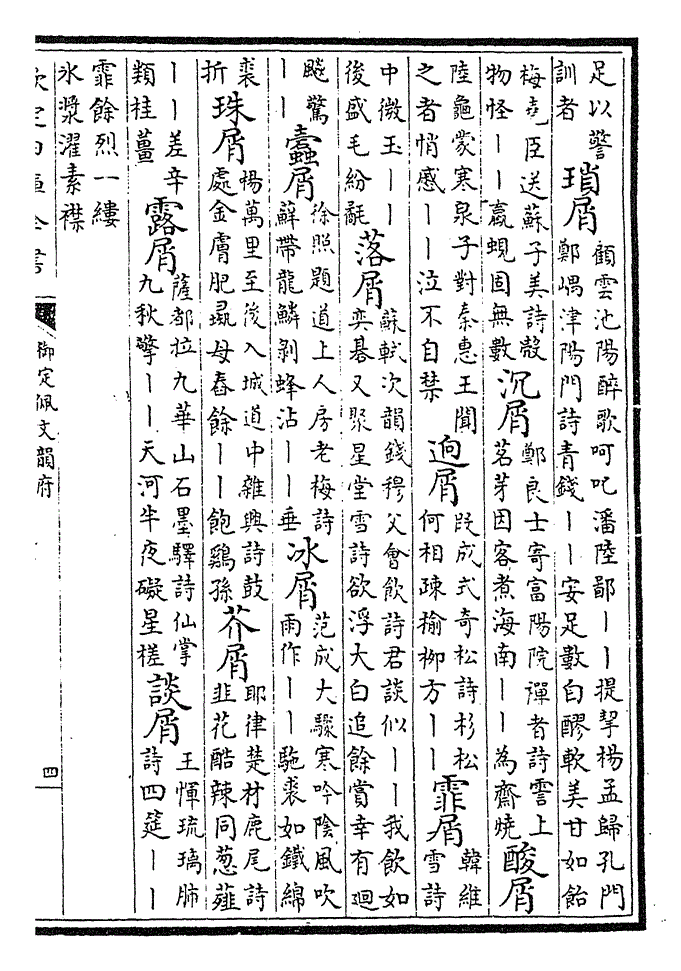 足以警
訓者
瑣屑
顧雲池陽醉歌呵叱潘陸鄙丨丨提挈楊孟歸孔門
鄭嵎津陽門詩青錢丨丨安足數白醪軟美甘如飴
梅堯臣送蘇子美詩殼
物怪丨丨蠃蜆固無數
沉屑
鄭良士寄富陽院禪者詩雲上
茗芽因客煮海南丨丨為齋燒
酸屑
陸龜蒙寒泉子對秦惠王聞
之者悄感丨丨泣不自禁
逈屑
段成式奇松詩杉松
何相疎榆柳方丨丨
霏屑
韓維
雪詩
中微玉丨丨
後盛毛紛㲝
落屑
蘇軾次韻錢穆父會飲詩君談似丨丨我飲如
奕碁又聚星堂雪詩欲浮大白追餘賞幸有廻
飈驚
丨丨
蠹屑
徐照題道上人房老梅詩
蘚帶龍鱗剝蜂沾丨丨垂
冰屑
范成大驟寒吟陰風吹
雨作丨丨駞裘如鐵綿
裘
折
珠屑
楊萬里至後入城道中雜興詩鼓
處金膚肥母舂餘丨丨飽鷄孫
芥屑
耶律楚材鹿尾詩
韭花酷辣同葱薤
丨丨差辛
類桂薑
露屑
薩都拉九華山石墨驛詩仙掌
九秋擎丨丨天河半夜礙星槎
談屑
王惲琉璃肺
詩四筵丨丨
霏餘烈一縷
氷漿濯素襟
欽定四庫全書
御定佩文韻府
四